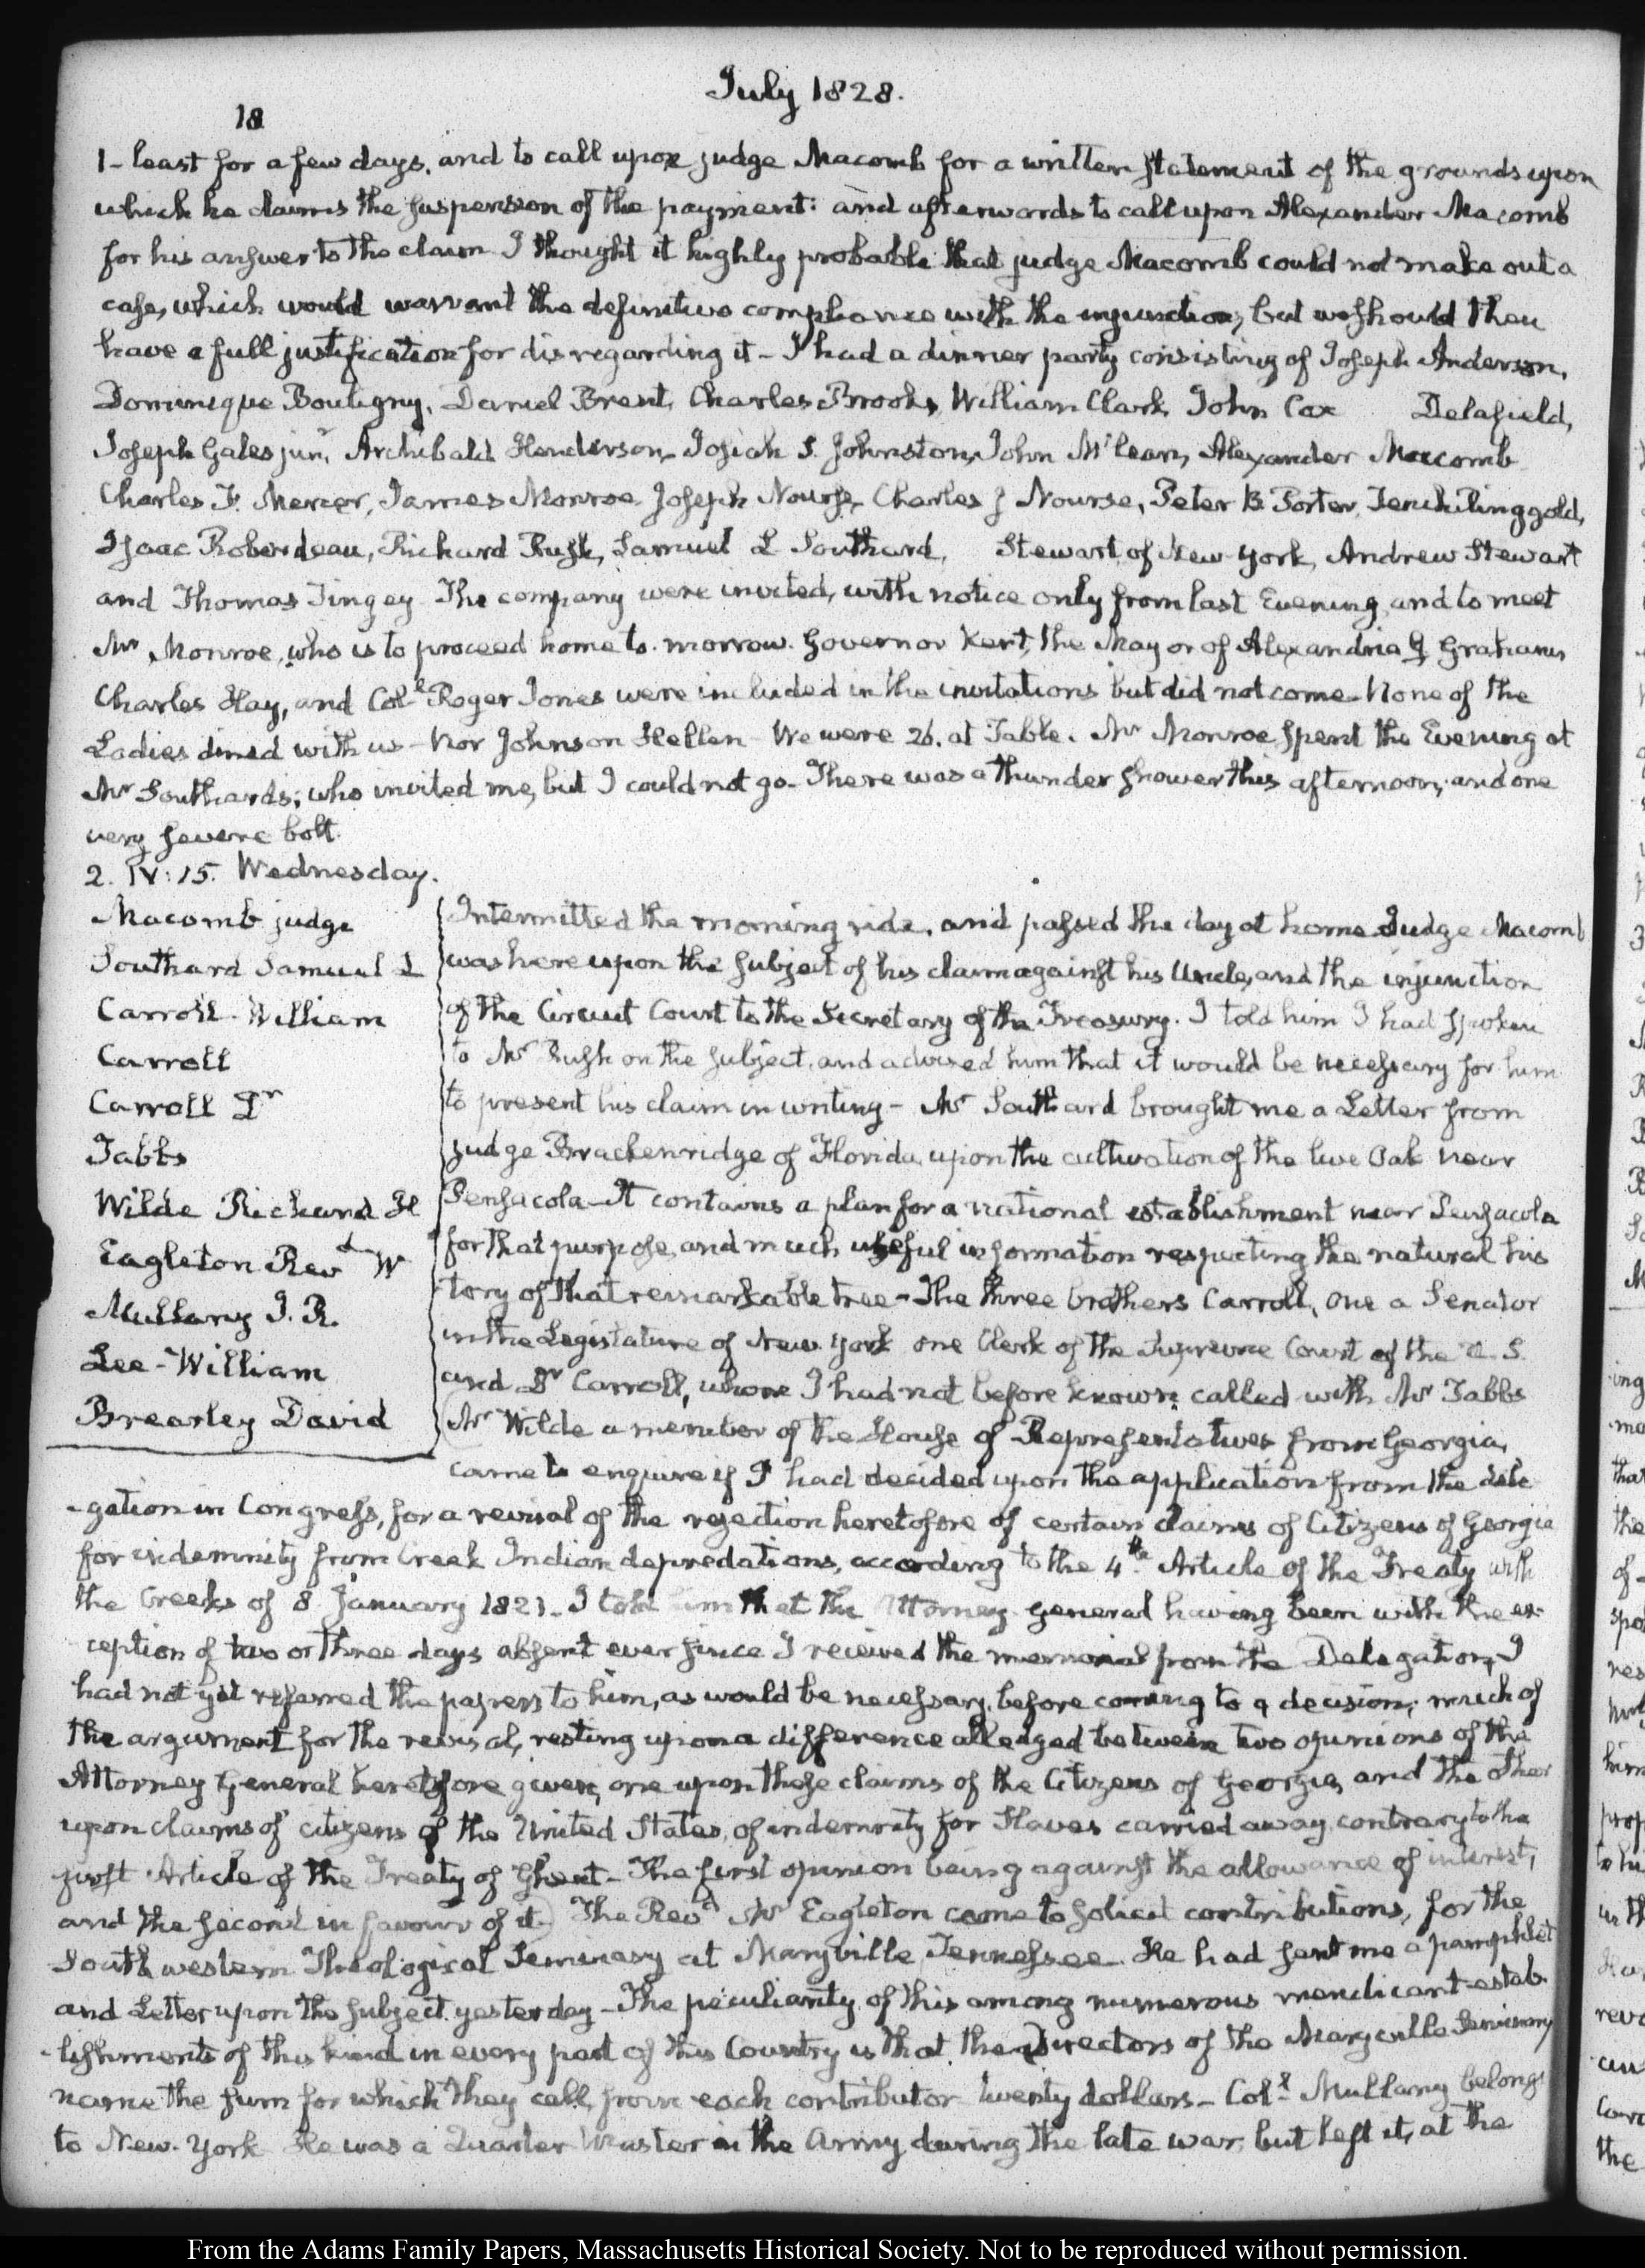 July 1828.
18
1 - least for a few days, and to call upon judge Macomb for a written statement of the grounds upon
which he claims the suspension of the payment: and afterwards to call upon Alexander Macomb
for his answer to the claim I thought it highly probable that judge Macomb could not make out a
case, which would warrant the definitive compliance with the injunction, but we should then
have a full justification for disregarding it - I had a dinner party consisting of Joseph Anderson,
Dominique Bouligny, Daniel Brent, Charles Brooks, William Clark, John Cox Delafield,
Joseph Gales junr, Archibald Henderson, Josiah S. Johnston, John McLean, Alexander Macomb
Charles F. Mercer, James Monroe Joseph Nourse, Charles J Nourse, Peter B Porter, Tench Ringgold,
Isaac Roberdeau, Richard Rush, Samuel L Southard, Stewart of New York, Andrew Stewart
and Thomas Tingey The company were invited, with notice only from last Evening, and to meet
Mr Monroe, who is to proceed home to-morrow. Governor Kent, the Mayor of Alexandria Graham
Charles Hay, and Coll Roger Jones were included in the invitations but did not come - None of the
Ladies dined with us - Nor Johnson Hellen - We were 26. at Table. Mr Monroe spent the Evening at
Mr Southard's; who invited me, but I could not go - There was a thunder shower this afternoon, and one
very severe bolt.
2. IV:15. Wednesday.
Macomb judge
Southard Samuel L
Carroll - William
Carroll
Carroll Dr
Tabbs
Wilde Richard H
Eagleton Revd W
Mullany J. R.
Lee - William
Brearley David
Intermitted the morning ride, and passed the day at home Judge Macomb
was here upon the subject of his claim against his Uncle, and the injunction
of the Circuit Court to the Secretary of the Treasury. I told him I had spoken
to Mr Rush on the subject, and advised him that it would be necessary for him
to present his claim in writing - Mr Southard brought me a Letter from
judge Brackenridge of Florida, upon the cultivation of the live Oak near
Pensacola - It contains a plan for a national establishment near Pensacola
for that purpose, and much useful information respecting the natural his
tory of that remarkable tree - The three brothers Carroll, one a Senator
in the Legislature of New York one Clerk of the Supreme Court of the U.S.
and Dr Carroll, whom I had not before known, called with Mr Tabbs
(Mr Wilde a member of the House of Representatives from Georgia,
came to enquire if I had decided upon the application from the dele
-gation in Congress, for a revisal of the rejection heretofore of certain claims of Citizens of Georgia
for indemnity from Creek Indian depredations, according to the 4th Article of the Treaty with
the Creeks of 8 January 1821 - I told him that the Attorney General having been with the ex-
ception of two or three days absent ever since I received the memorial from the Delegation, I
had not yet referred the papers to him, as would be necessary, before coming to a decision; much of
the argument for the revisal, resting upon a difference alledged between two opinions of the
Attorney General heretofore given, one upon these claims of the Citizens of Georgia, and the other
upon claims of citizens of the United States, of indemnity for Slaves carried away contrary to the
first Article of the Treaty of Ghent - The first opinion being against the allowance of interest,
and the second in favour of it.) The Revd Mr Eagleton came to solicit contributions, for the
South western Theological Seminary at Maryville Tennessee. He had sent me a pamphlet
and Letter upon the subject yesterday - The peculiarity of this among numerous mendicant estab-
-lishments of this kind in every part of this Country is that the Directors of the Maryville Seminary
name the sum for which they call, from each contributor twenty dollars - Coll Mullany belongs
to New-York He was a Quarter Master in the Army during the late war, but left it, at the
From the Adams Family Papers, Massachusetts Historical Society. Not to be reproduced without permission.